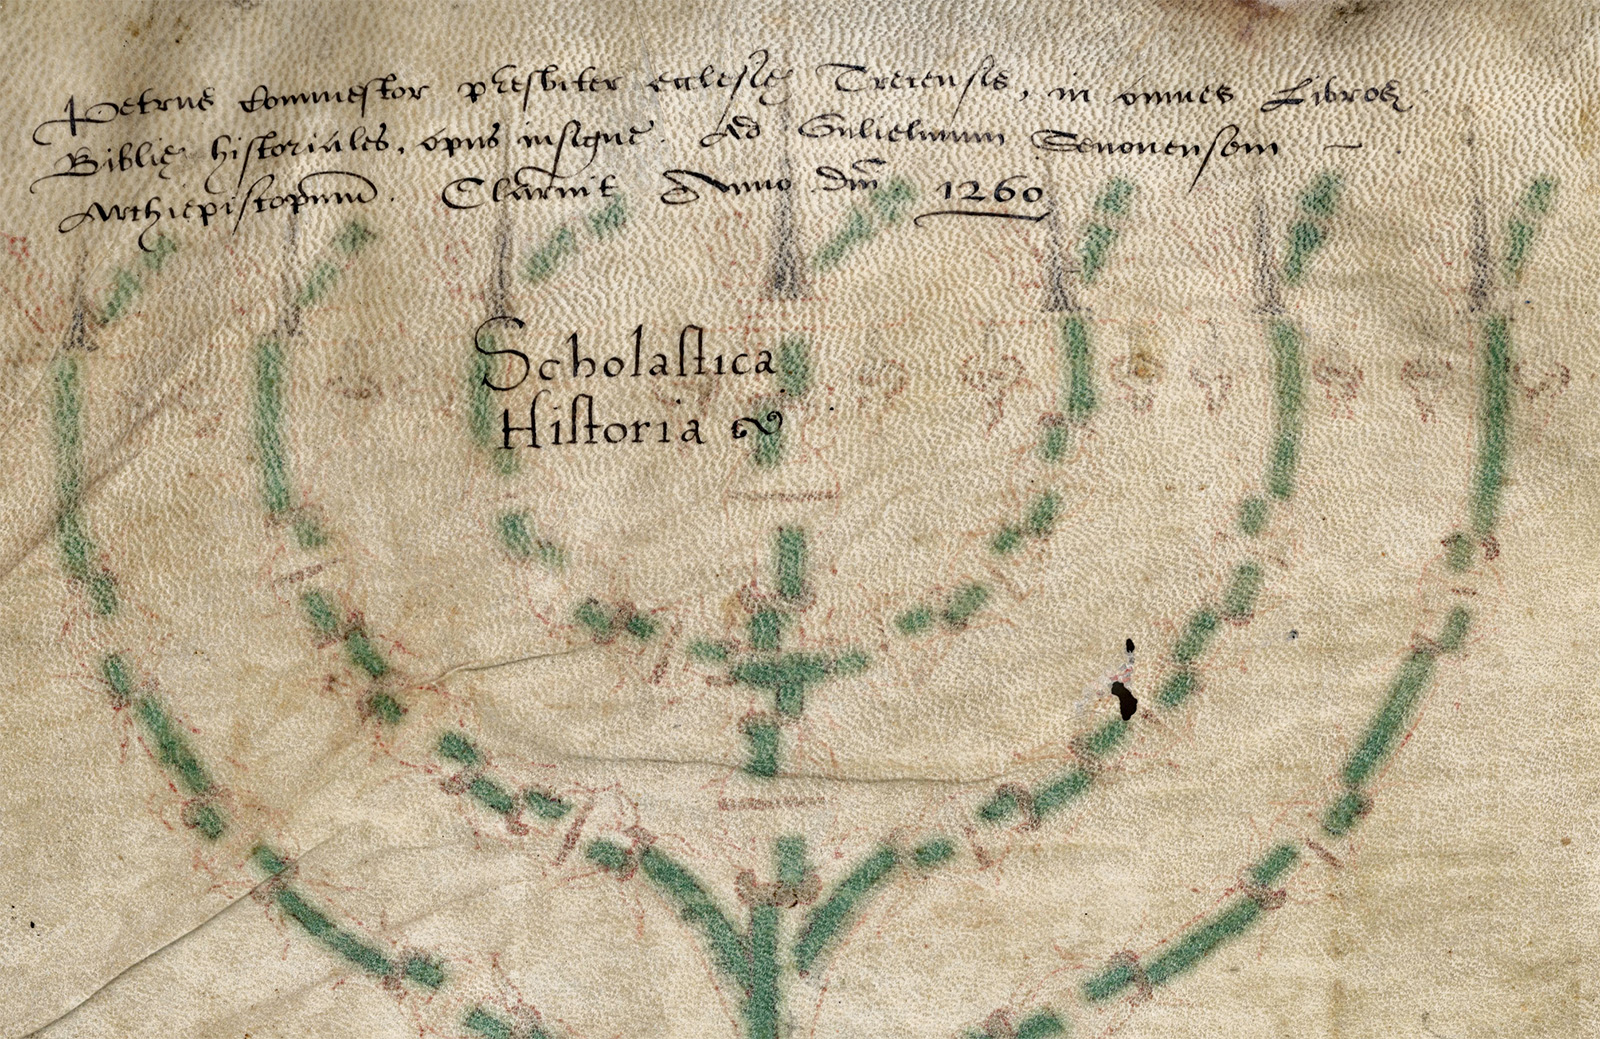 Petrus Commestor presbiter ecclesię Trecensis, in omnes Libros
Biblię historiales, opus insigne. Ad Gulielmum Senonensem
Archiepiscopum. Claruit Anno Dm̃ 1260
Scholaſtica
Hiſtoria